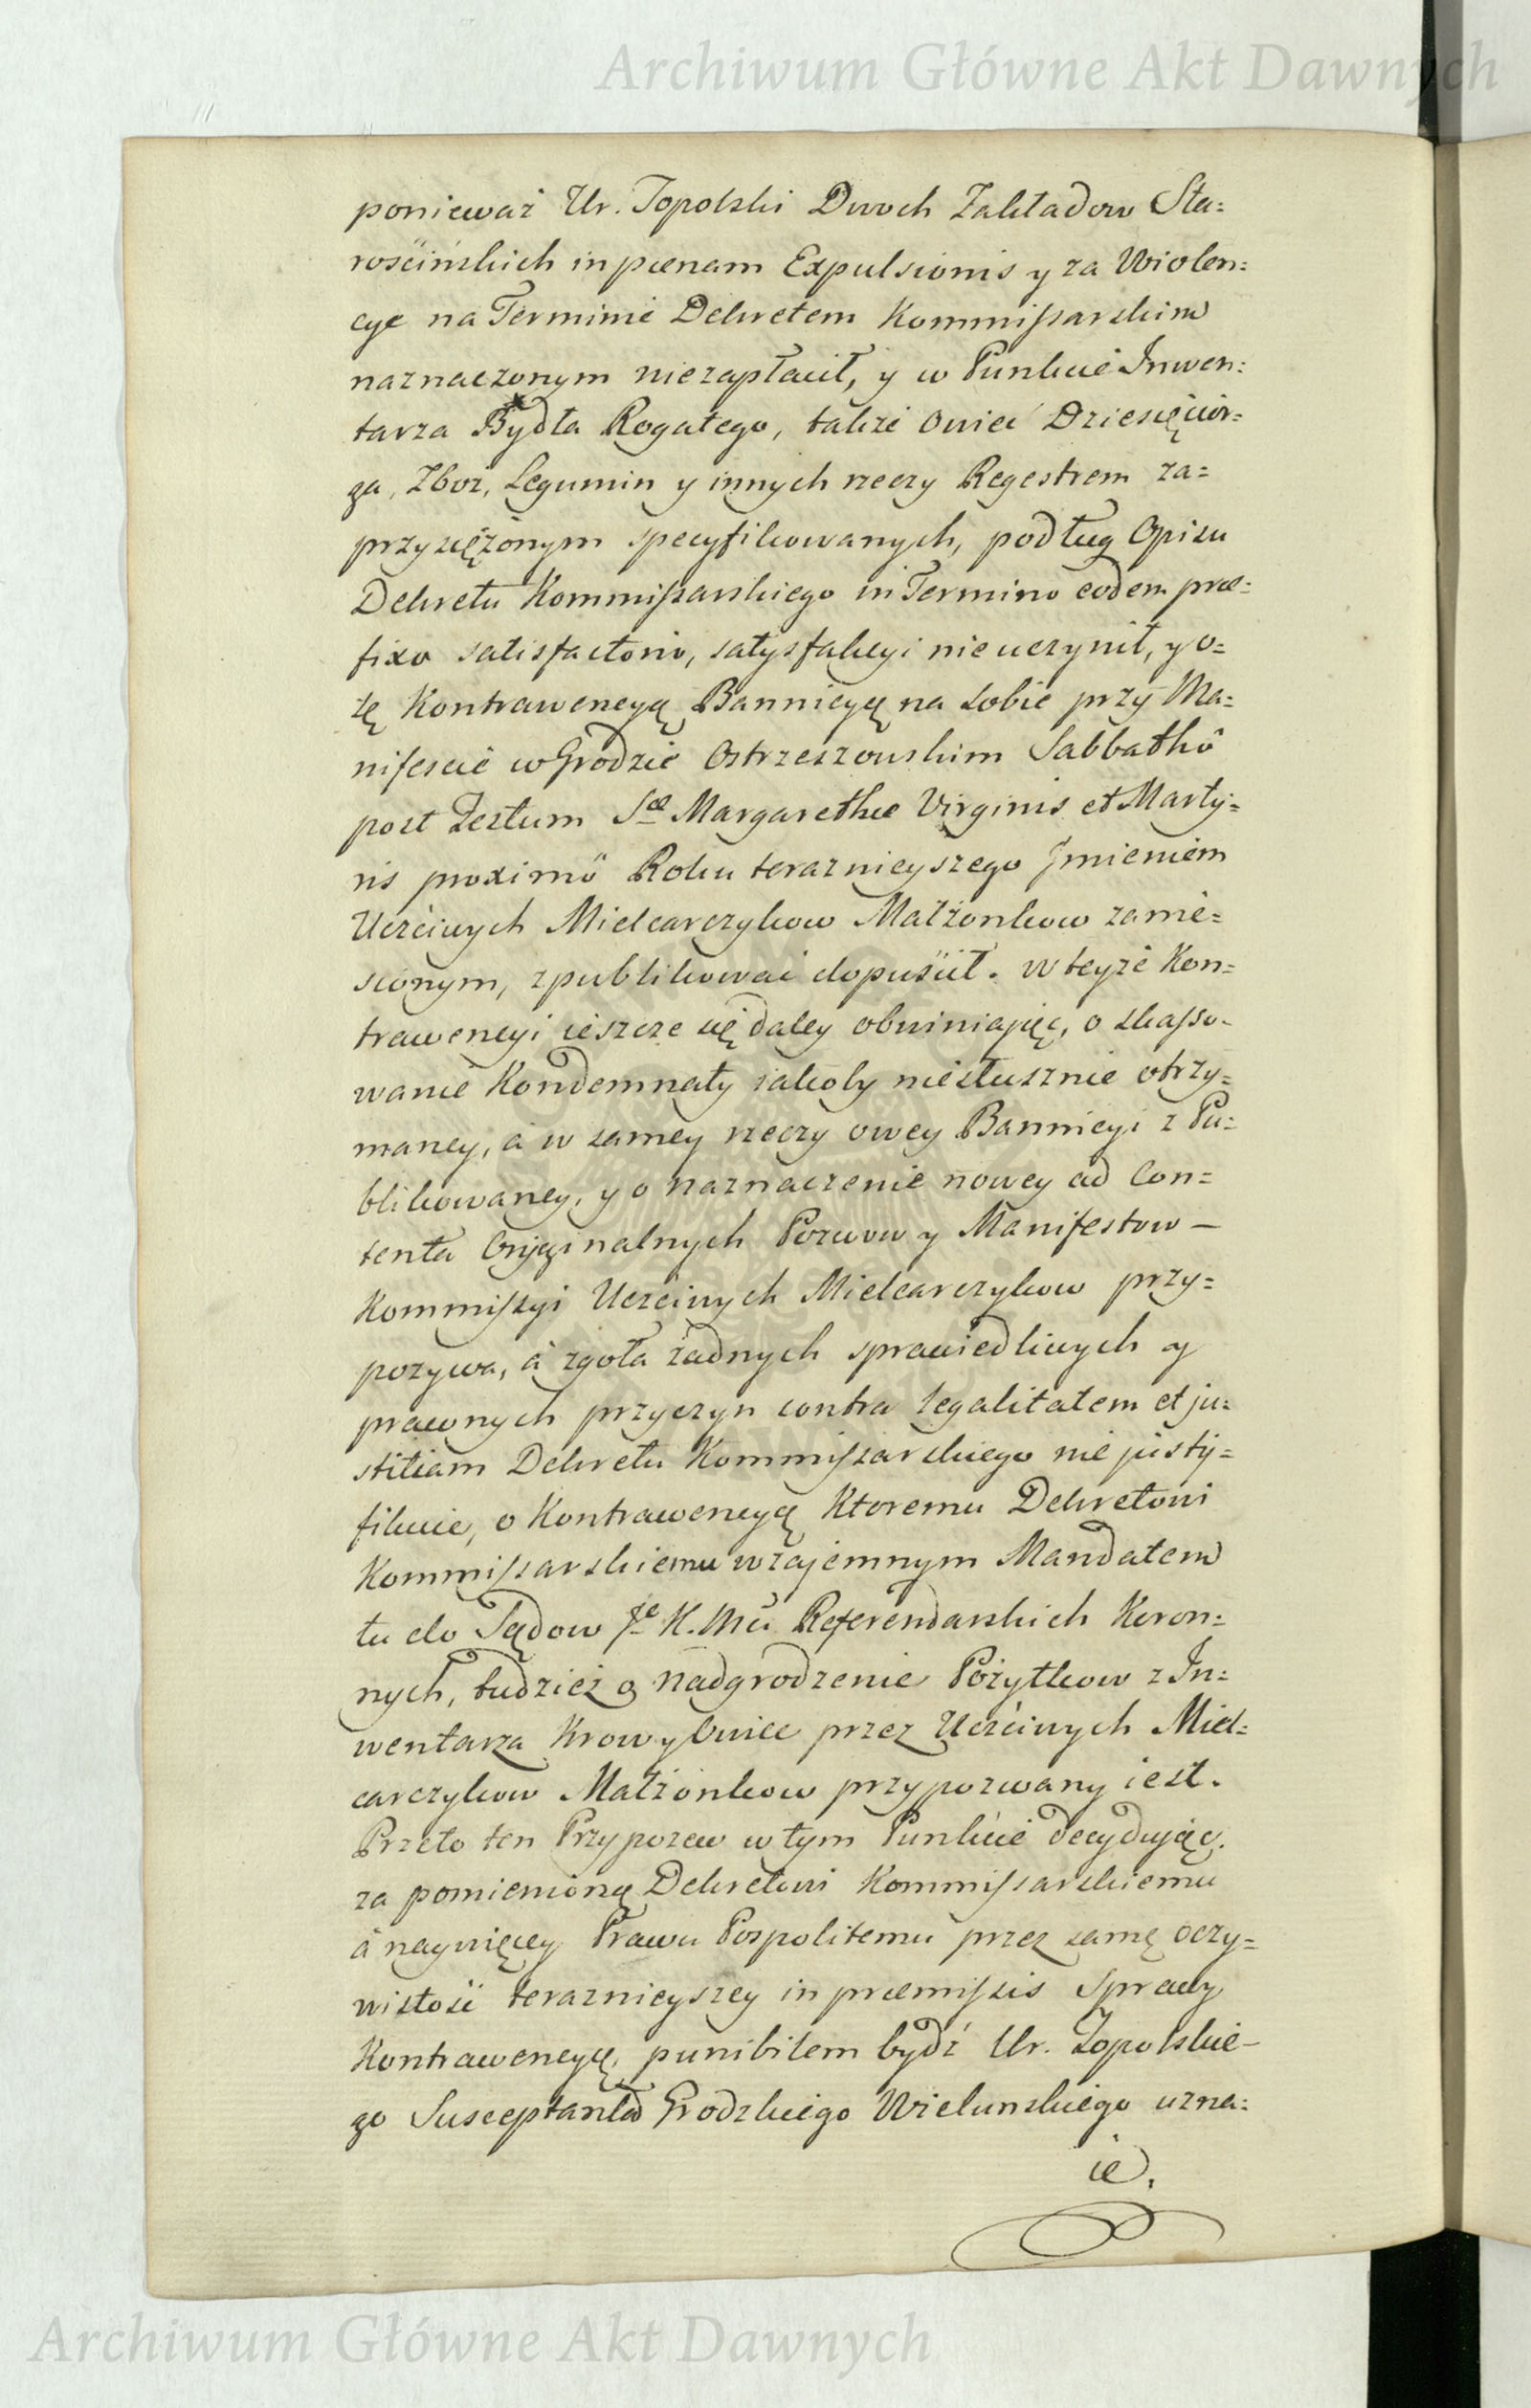 Archiwum Główne Akt Dawnych
ponieważ Ur. Topolski Dwoch Zakładow Sta=
rościńskich in pœnam Expulsionis y za Wiolen=
cye na Terminie Dekretem Kommissarskim
naznaczonym niezapłacił, y w Punkcie Inwen=
tarza Bydła Rogatego, także Owiec Dziesięcior=
ga, Zboż, Legumin y innych rzeczy Regestrem za=
przysiężonym specyfikowanych, podług Opisu
Dekretu Kommissarskiego in Termino eodem præ=
fixo satisfactorio, satysfakcyi nieuczynił, y o=
tę Kontrawencyą Bannicyą na sobie przy Ma=
nifescie w Grodzie Ostrzeszowskim Sabbathô
post Festum Sæ Margarethæ Virginis et Marty=
ris proximô Roku teraznieyszego Jmieniem
Uczciwych Mielcarczykow Małżonkow zanie=
sionym, zpublikować dopuścił. w teyże Kon=
trawencyi ieszcze się daley obwiniaiąc, o skasso-
wanie Kondemnaty iakoby niesłusznie otrzy=
maney, á w samey rzeczy owey Bannicyi z Pu=
blikowaney, y o naznaczenie nowey ad Con=
tenta Oryginalnych Pozwow y Manifestow —
Kommissyi Uczciwych Mielcarczykow przy=
pozywa, á zgoła żadnych sprawiedliwych y
prawnych przyczyn contra legalitatem et ju=
stitiam Dekretu Kommissarskiego nie justy=
fikuie, o Kontrawencyą Ktoremu Dekretowi
Kommissarskiemu wzajemnym Mandatem
tu do Sądow Je K. Mci Referendarskich Koron=
nych, tudzież o nadgrodzenie Pożytkow z In=
wentarza Krow y Owiec przez Uczciwych Miel=
carczykow Małżonkow przypozwany iest.
Przeto ten Przypozew w tym Punkcie decydując.
za pomienioną Dekretowi Kommissarskiemu
á naywięcey Prawu Pospolitemu przez samę oczy=
wistość teraznieyszey in præmissis Sprawy
Kontrawencyą, punibilem bydź Ur. Topolskie-
go Susceptanta Grodzkiego Wielunskiego uzna=
ie.
Archiwum Główne Akt Dawnych